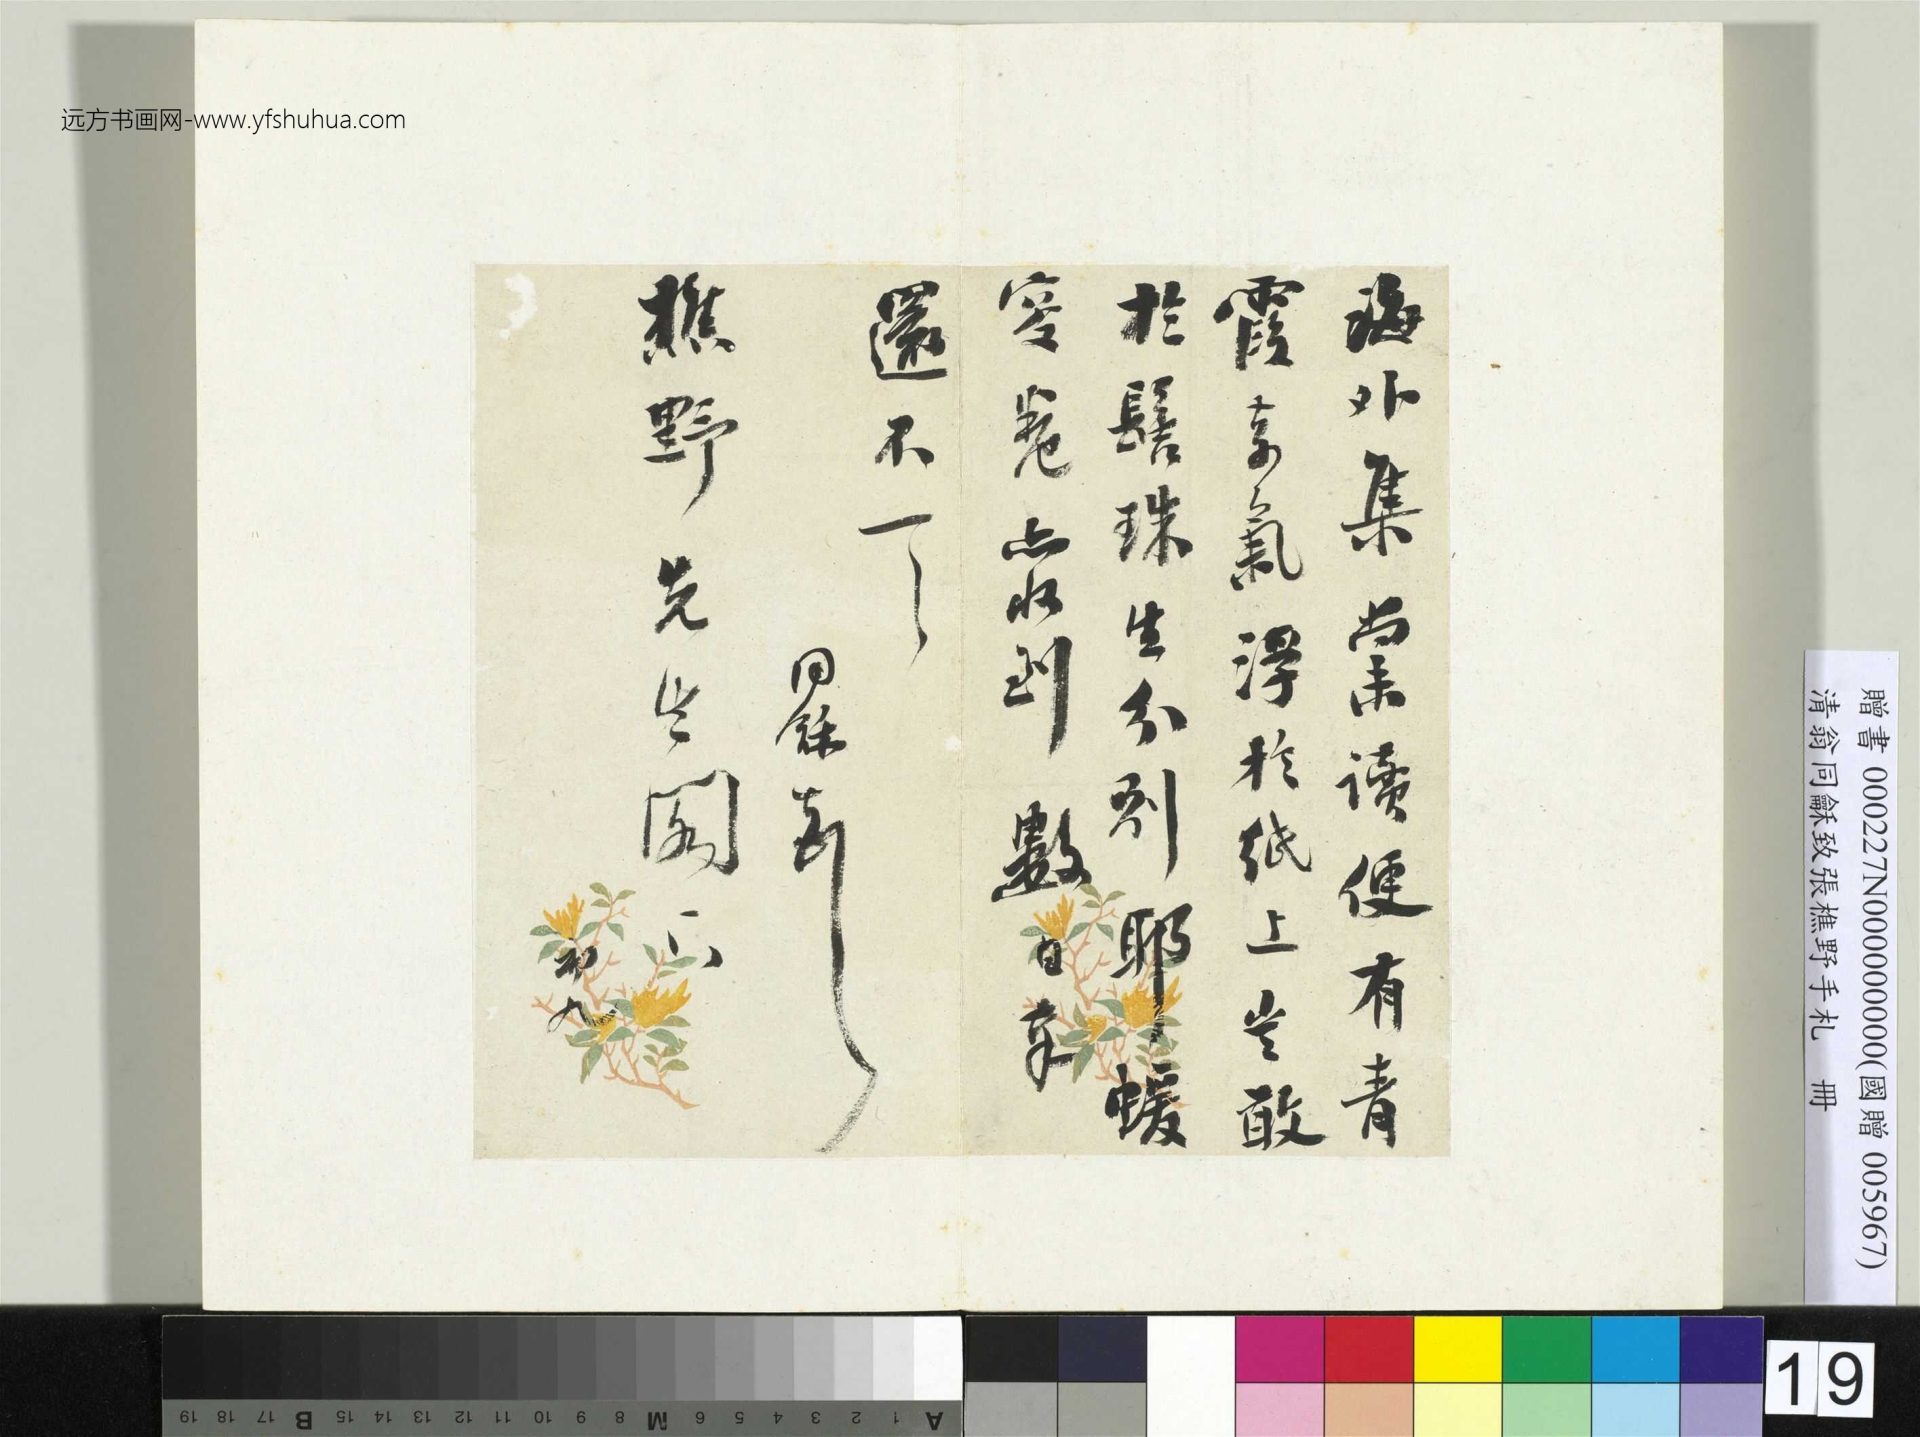 远方书画网-www.yfshuhua.com
海外集尚未讀便有青
霞奇氣浮於紙上豈敢
於髯珠生分別耶蝯
叟卷亦收到數日奉
還不一一
同龢頓首
樵野先生閣下
初九
贈書 000227N000000000(國贈 005967)
清翁同龢致張樵野手札 冊
19
A 1 2 3 4 5 6 M 8 9 10 11 12 13 14 15 B 17 18 19